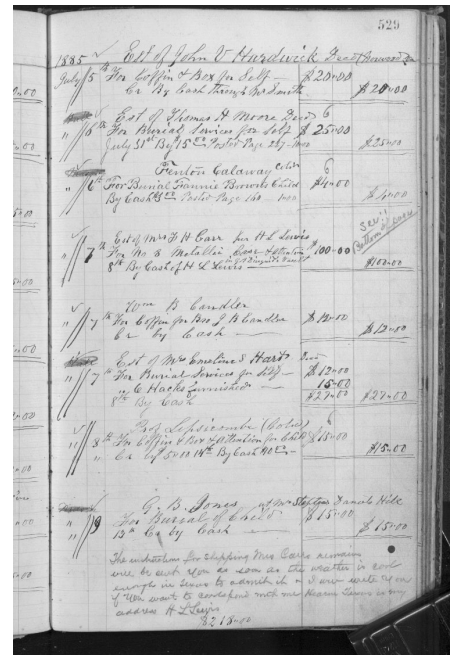 529
1885 Est of John V Hardwick Decd
July 5th For Coffin & Box for Self — $20.00
Cr By Cash through Mr Smith $20.00
Est of Thomas H Moore Decd 6
" 6th For Burial Services for Self $25.00
July 31st By 15 00 Posted Page 247-1000 $25.00
Fenton Calaway Cold 6
" 6th For Burial Fannie Browns Child $4.00
By Cash 3 00 Posted Page 160 — 100 $4.00
See "
Bottom of page
Est of Mrs F H Carr per H L Lewis
" 7th For No 3 Metallic Case & Attention $100.00
8th By Cash of H L Lewis — $100.00
Wm B Candler
" 7th For Coffin for Bro J B Candler $12.00
Cr by Cash — $12.00
Est of Mrs Emeline S Hart Decd
" 7th For Burial Services for Self — $12.00
" 6 Hacks furnished — 15.00
8th By Cash $27.00 $27.00
Prof Lipscombe (Cold) 6
" 8th For Coffin & Box & Attention for Child $15.00
" Cr By 5 00 14th By Cash $10 00 — $15.00
G. B. Jones at Mrs
" 9 For Burial of Child $15.00
13th Cr by Cash — $15.00
The instructions for shipping Mrs Carrs remains
will be sent you as soon as the weather is cool
enough in Texas to admit it or I will write you
if you want to correspond with me Hearne Texas is my
address H L Lewis
$218.00